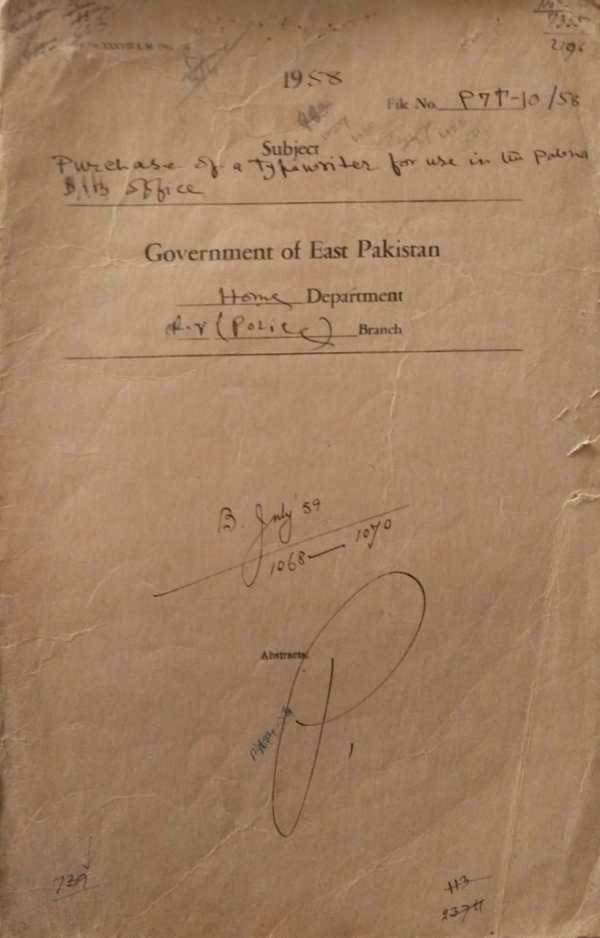 1958
File No. P7T-10/58
Subject
Purchase of a Typewriter for use in the Pabna
D.I.B office
Government of East Pakistan
Home Department
(Police) Branch
B. July '59
1068 — 1070
Abstracts
P
739